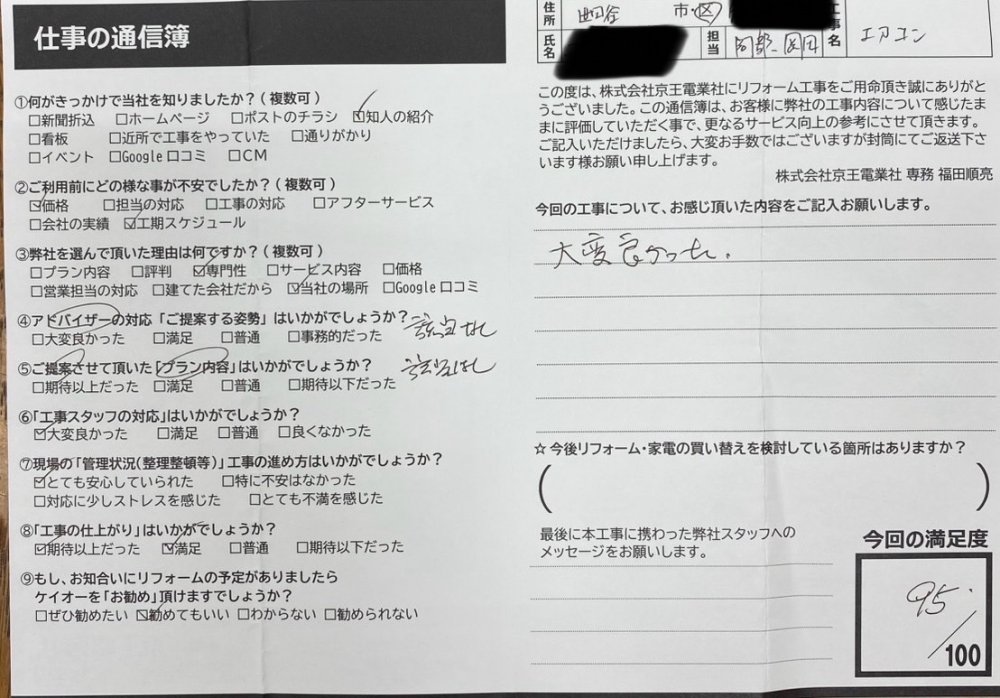 仕事の通信簿
①何がきっかけで当社を知りましたか?(複数可)
□新聞折込 □ホームページ □ポストのチラシ ☑知人の紹介
□看板 □近所で工事をやっていた □通りがかり
□イベント □Google口コミ □CM
②ご利用前にどの様な事が不安でしたか?(複数可)
☑価格 □担当の対応 □工事の対応 □アフターサービス
□会社の実績 ☑工期スケジュール
③弊社を選んで頂いた理由は何ですか?(複数可)
□プラン内容 □評判 ☑専門性 □サービス内容 □価格
□営業担当の対応 □建てた会社だから ☑当社の場所 □Google口コミ
④アドバイザーの対応「ご提案する姿勢」はいかがでしょうか? 該当なし
□大変良かった □満足 □普通 □事務的だった
⑤ご提案させて頂いた「プラン内容」はいかがでしょうか? 該当なし
□期待以上だった □満足 □普通 □期待以下だった
⑥「工事スタッフの対応」はいかがでしょうか?
☑大変良かった □満足 □普通 □良くなかった
⑦現場の「管理状況(整理整頓等)」工事の進め方はいかがでしょうか?
☑とても安心していられた □特に不安はなかった
□対応に少しストレスを感じた □とても不満を感じた
⑧「工事の仕上がり」はいかがでしょうか?
☑期待以上だった ☑満足 □普通 □期待以下だった
⑨もし、お知合いにリフォームの予定がありましたら
ケイオーを「お勧め」頂けますでしょうか?
□ぜひ勧めたい ☑勧めてもいい □わからない □勧められない
住所 市・区
氏名 担当 工事名 エアコン
この度は、株式会社京王電業社にリフォーム工事をご用命頂き誠にありがと
うございました。この通信簿は、お客様に弊社の工事内容について感じたま
まに評価していただく事で、更なるサービス向上の参考にさせて頂きます。
ご記入いただけましたら、大変お手数ではございますが封筒にてご返送下さ
います様お願い申し上げます。
株式会社京王電業社 専務 福田順亮
今回の工事について、お感じ頂いた内容をご記入お願いします。
大変良かった.
☆今後リフォーム・家電の買い替えを検討している箇所はありますか?
( )
最後に本工事に携わった弊社スタッフへの
メッセージをお願いします。
今回の満足度
95
/100